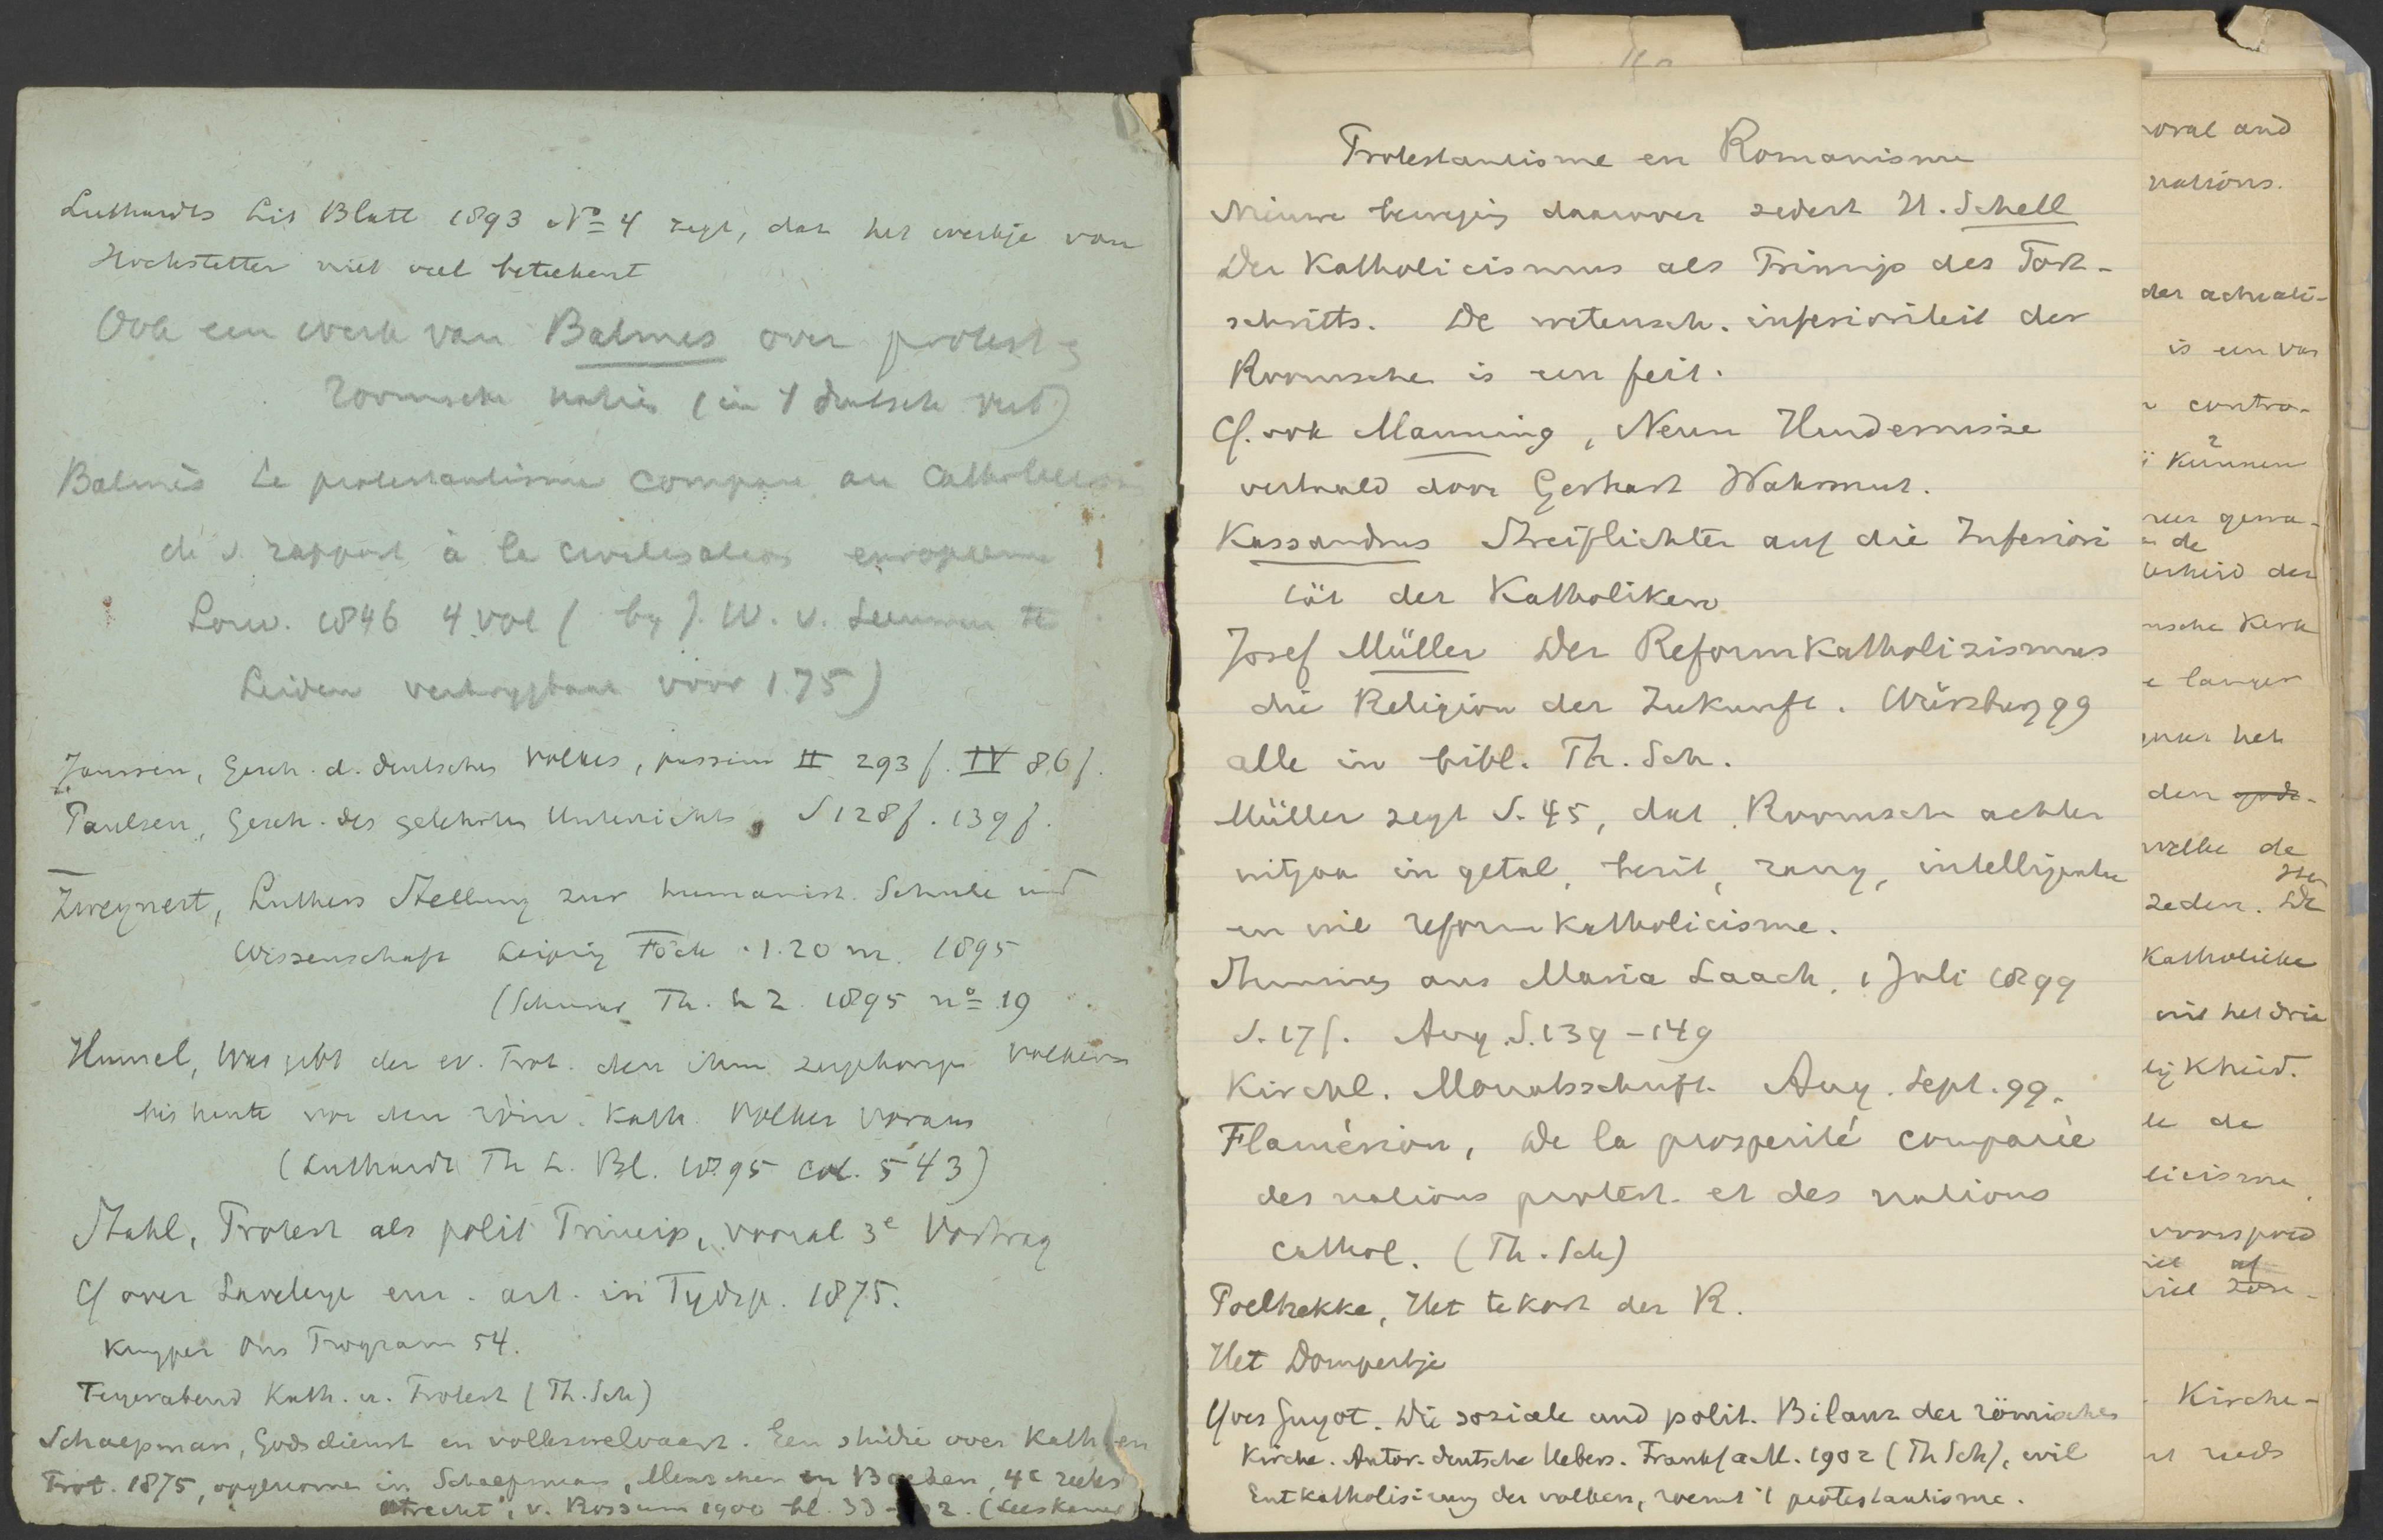 Luthardts Lit Blatt 1893 No 4 zegt, dat het werkje van
Hochstetter niet veel beteekent
Ook een werk van Balmes over protest
roomsche natiën (in 't duitsch vert)
Balmès Le protestantisme comparé au Catholicisme
de s. rapport à la civilisation européenne
Louv. 1846 4 vol ( by J. W. v. Leeuwen te
Leiden verkrygbaar voor 1.75)
Janssen, Gesch. d. deutschen Volkes, passim II 293 f. IV 86 f.
Paulsen, Gesch. des gelehrten Unterrichts, S 128 f. 139 f.
Zweynert, Luthers Stellung zur humanist. Schule und
Wissenschaft Leipzig Fock 1.20 m. 1895
(Schurer Th. L Z. 1895 no 19
Hummel, Was gibt der ev. Prot. den ihm zugehörige Volkern
bis heute vor den röm. Kath. Völker voraus
(Luthardt Th L. Bl. 1895 col. 543)
Stahl, Protest als polit Princip, vooral 3e Vortrag
Cf over Laveleye een art. in Tydsp. 1875.
Kuyper Ons Program 54.
Feyerabend Kath. u. Protest (Th. Sch)
Schaepman, Godsdienst en volkswelvaart. Een studie over Kath en
Prot. 1875, opgenomen in Schaepman, Menschen en Boeken, 4e reeks
Utrecht, v. Rossum 1900 bl. 33 - (Leeskamer)
Protestantisme en Romanisme
Nieuwe beweging daarover sedert H. Schell
Der Katholicismus als Princip des Fort-
schritts. De wetensch. inferioriteit der
Roomsche is een feit.
Cf. ook Manning, Neun Hindernisse
vertaald door Gerhart Wahrmut.
Kassandrus Streiflichter auf die Inferiori
tät der Katholiken
Josef Müller Der Reformkatholizismus
die Religion der Zukunft. Würzburg 99
alle in bibl. Th. Sch.
Müller zegt S. 45, dat Roomsch achter
uitgaa in getal, bezit, rang, intelligentie
en wil reformkatholicisme.
Stimmen aus Maria Laach, 1 Juli 1899
S. 17 f. Aug. S. 139 - 149
Kirchl. Monatsschrift. Aug. Sept. 99.
Flamérion, De la prosperité comparée
des nations protest. et des nations
cathol. (Th. Sch)
Poelhekke, Het tekort der K.
Het Dompertje
Yves Guyot. Die soziale und polit. Bilanz der römischen
Kirche. Autor. deutsche Uebers. Frankf a M. 1902 (Th Sch), wil
Entkatholisirung der volken, roemt 't protestantisme.
oral and
nations.
der actuali-
is een vas
contra-
kunnen
gewa-
de
der
nsche Kerk
e langer
het
den
welke de
zeden. De
Katholieke
met het drie
lijkheid.
le de
licisme
voorspoed
af
Kirche-
reeds